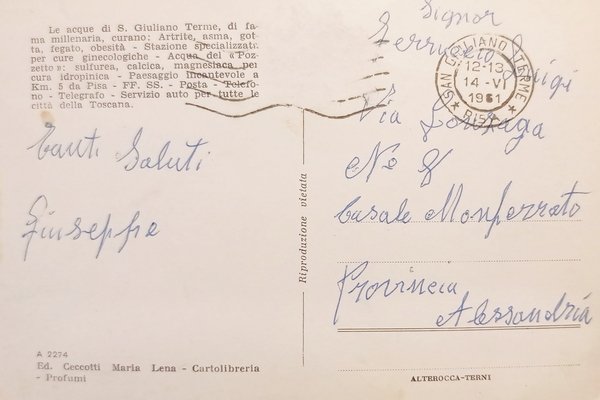 Le acque di S. Giuliano Terme, di fa-
ma millenaria, curano: Artrite, asma, got-
ta, fegato, obesità - Stazione specializzata
per cure ginecologiche - Acqua del «Poz-
zetto»: sulfurea, calcica, magnesiaca per
cura idropinica - Paesaggio incantevole a
Km. 5 da Pisa - FF. SS. - Posta - Telefo-
no - Telegrafo - Servizio auto per tutte le
città della Toscana.
Tanti Saluti
Giuseppe
A 2274
Ed. Ceccotti Maria Lena - Cartolibreria
- Profumi
Riproduzione vietata
SAN GIULIANO TERME
12-13
14-VI
1961
PISA
Signor
Luigi
Via
No 8
Casale Monferrato
Provincia
Alessandria
ALTEROCCA-TERNI